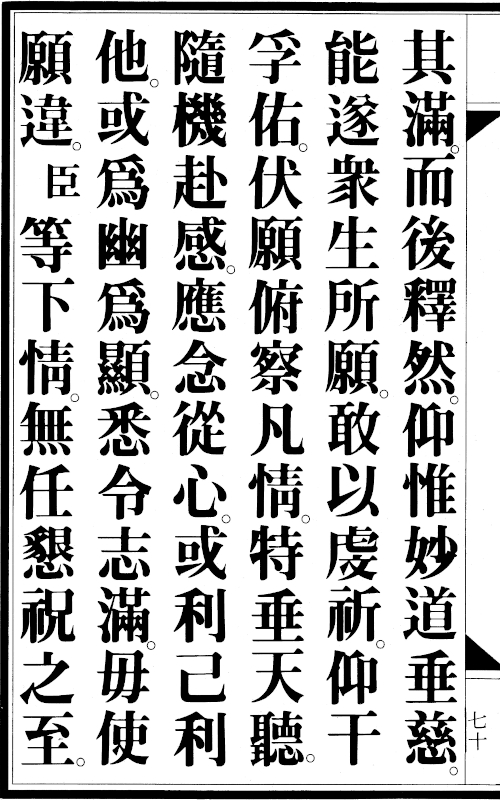 其滿。而後釋然。仰惟妙道垂慈。
能遂衆生所願。敢以虔祈。仰干
孚佑。伏願俯察凡情。特垂天聽。
隨機赴感。應念從心。或利己利
他。或爲幽爲顯。悉令志滿。毋使
願違。臣等下情。無任懇祝之至。
七十